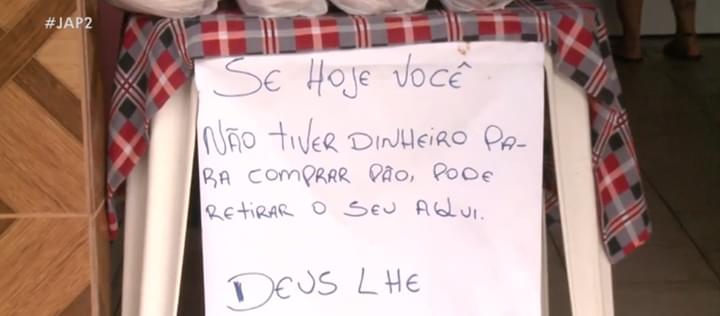 #JAP2
SE HOJE VOCÊ
NÃO TIVER DINHEIRO PA-
RA COMPRAR PÃO, PODE
RETIRAR O SEU AQUI.
DEUS LHE